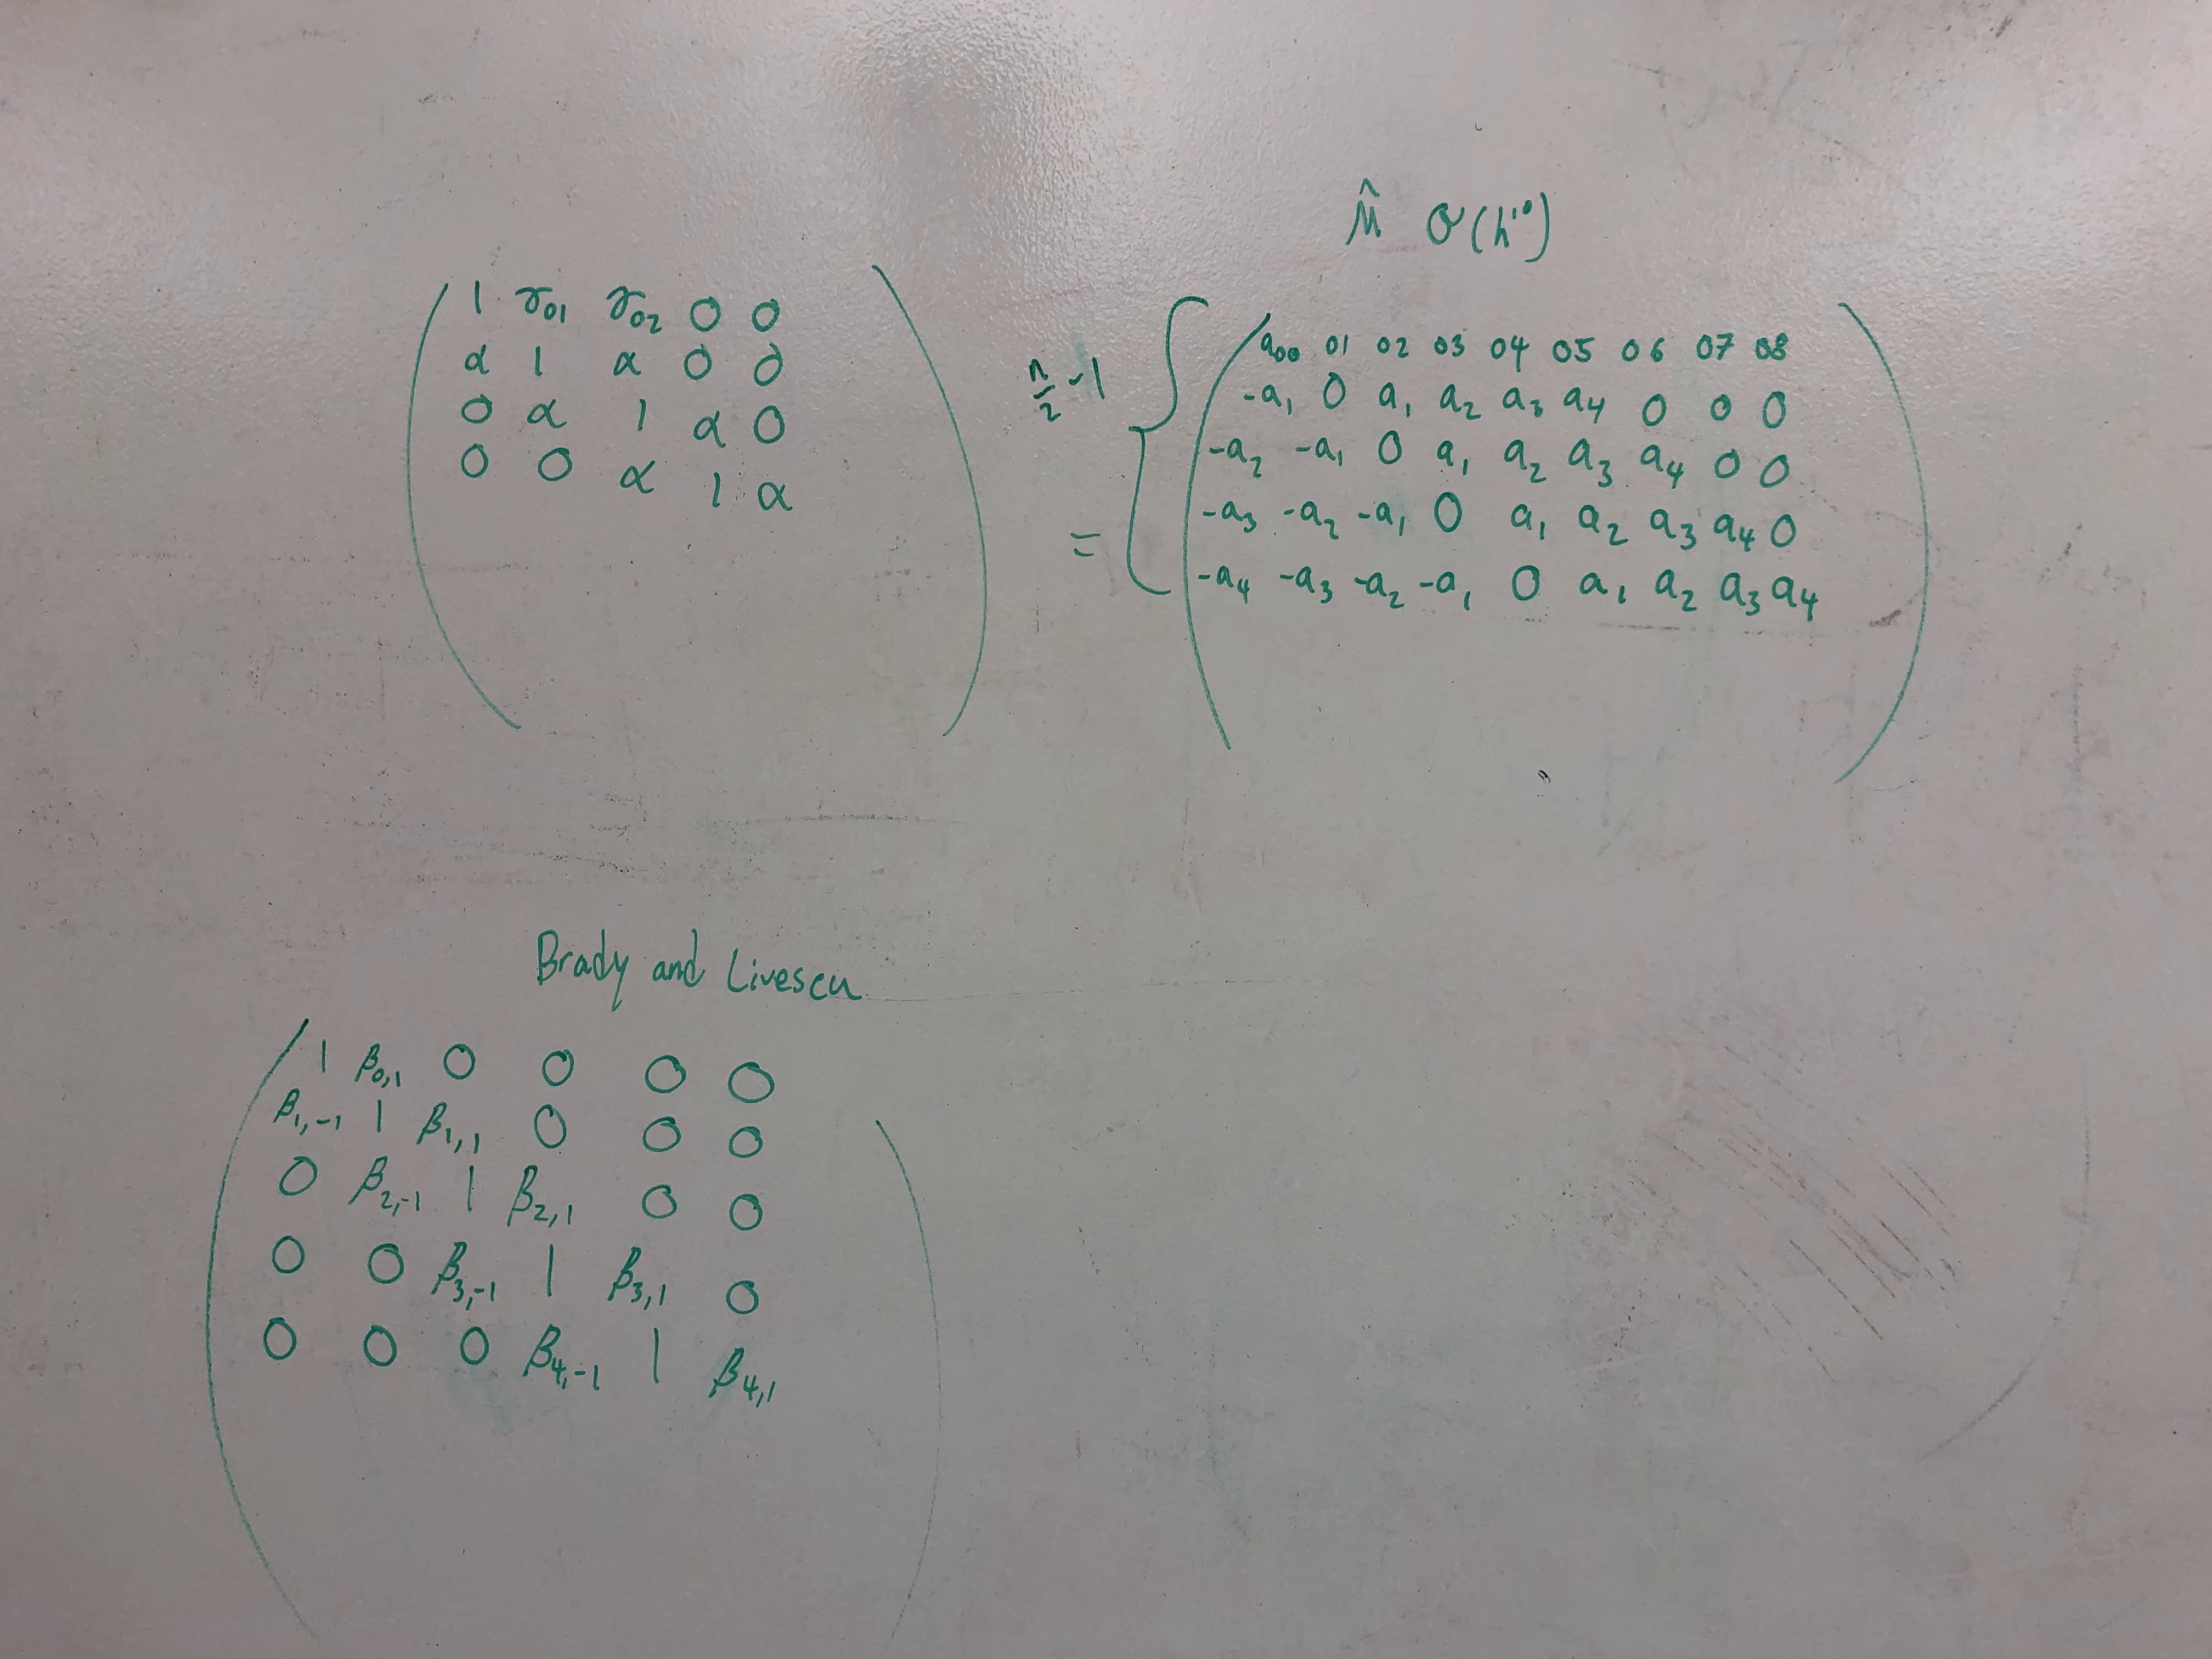 μ̂ O(h¹⁰)
1 γ₀₁ γ₀₂ 0 0
α 1 α 0 0
0 α 1 α 0
0 0 α 1 α
n/2 -1
=
a₀₀ 01 02 03 04 05 06 07 08
-a₁ 0 a₁ a₂ a₃ a₄ 0 0 0
-a₂ -a₁ 0 a₁ a₂ a₃ a₄ 0 0
-a₃ -a₂ -a₁ 0 a₁ a₂ a₃ a₄ 0
-a₄ -a₃ -a₂ -a₁ 0 a₁ a₂ a₃ a₄
Brady and Livescu
1 β₀,₁ 0 0 0 0
β₁,₋₁ 1 β₁,₁ 0 0 0
0 β₂,₋₁ 1 β₂,₁ 0 0
0 0 β₃,₋₁ 1 β₃,₁ 0
0 0 0 β₄,₋₁ 1 β₄,₁